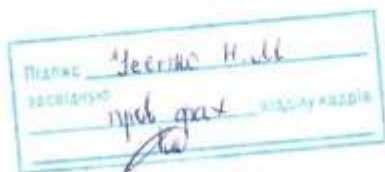 Підпис Н.М
засвідчую
пров фах відділу кадрів